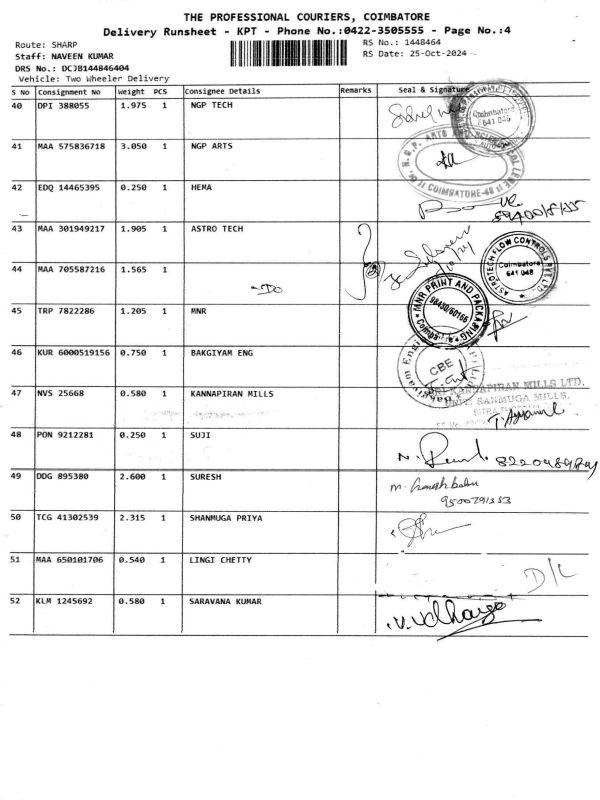 THE PROFESSIONAL COURIERS, COIMBATORE
Delivery Runsheet - KPT - Phone No.:0422-3505555 - Page No.:4
Route: SHARP
RS No.: 1448464
Staff: NAVEEN KUMAR
RS Date: 25-Oct-2024
DRS No.: DCJB144846404
Vehicle: Two Wheeler Delivery
S No Consignment No Weight PCS Consignee Details Remarks Seal & Signature
40 DPI 388055 1.975 1 NGP TECH
Coimbatore
641 046
41 MAA 575836718 3.050 1 NGP ARTS
Dr. N.G.P. ARTS AND SCIENCE COLLEGE
COIMBATORE-48
42 EDQ 14465395 0.250 1 HEMA
43 MAA 301949217 1.905 1 ASTRO TECH
ASTROTECH FLOW CONTROLS PVT LTD
Coimbatore
641 048
44 MAA 705587216 1.565 1
-Do
45 TRP 7822286 1.205 1 MNR
MNR PRINT AND PACKAGING
98430/60166
Coimbatore
46 KUR 6000519156 0.750 1 BAKGIYAM ENG
CBE
47 NVS 25668 0.580 1 KANNAPIRAN MILLS
SRI KANNAPIRAN MILLS LTD.
UNIT: SANMUGA MILLS,
48 PON 9212281 0.250 1 SUJI
49 DDG 895380 2.600 1 SURESH
9500791353
50 TCG 41302539 2.315 1 SHANMUGA PRIYA
51 MAA 650101706 0.540 1 LINGI CHETTY
D/L
52 KLM 1245692 0.580 1 SARAVANA KUMAR